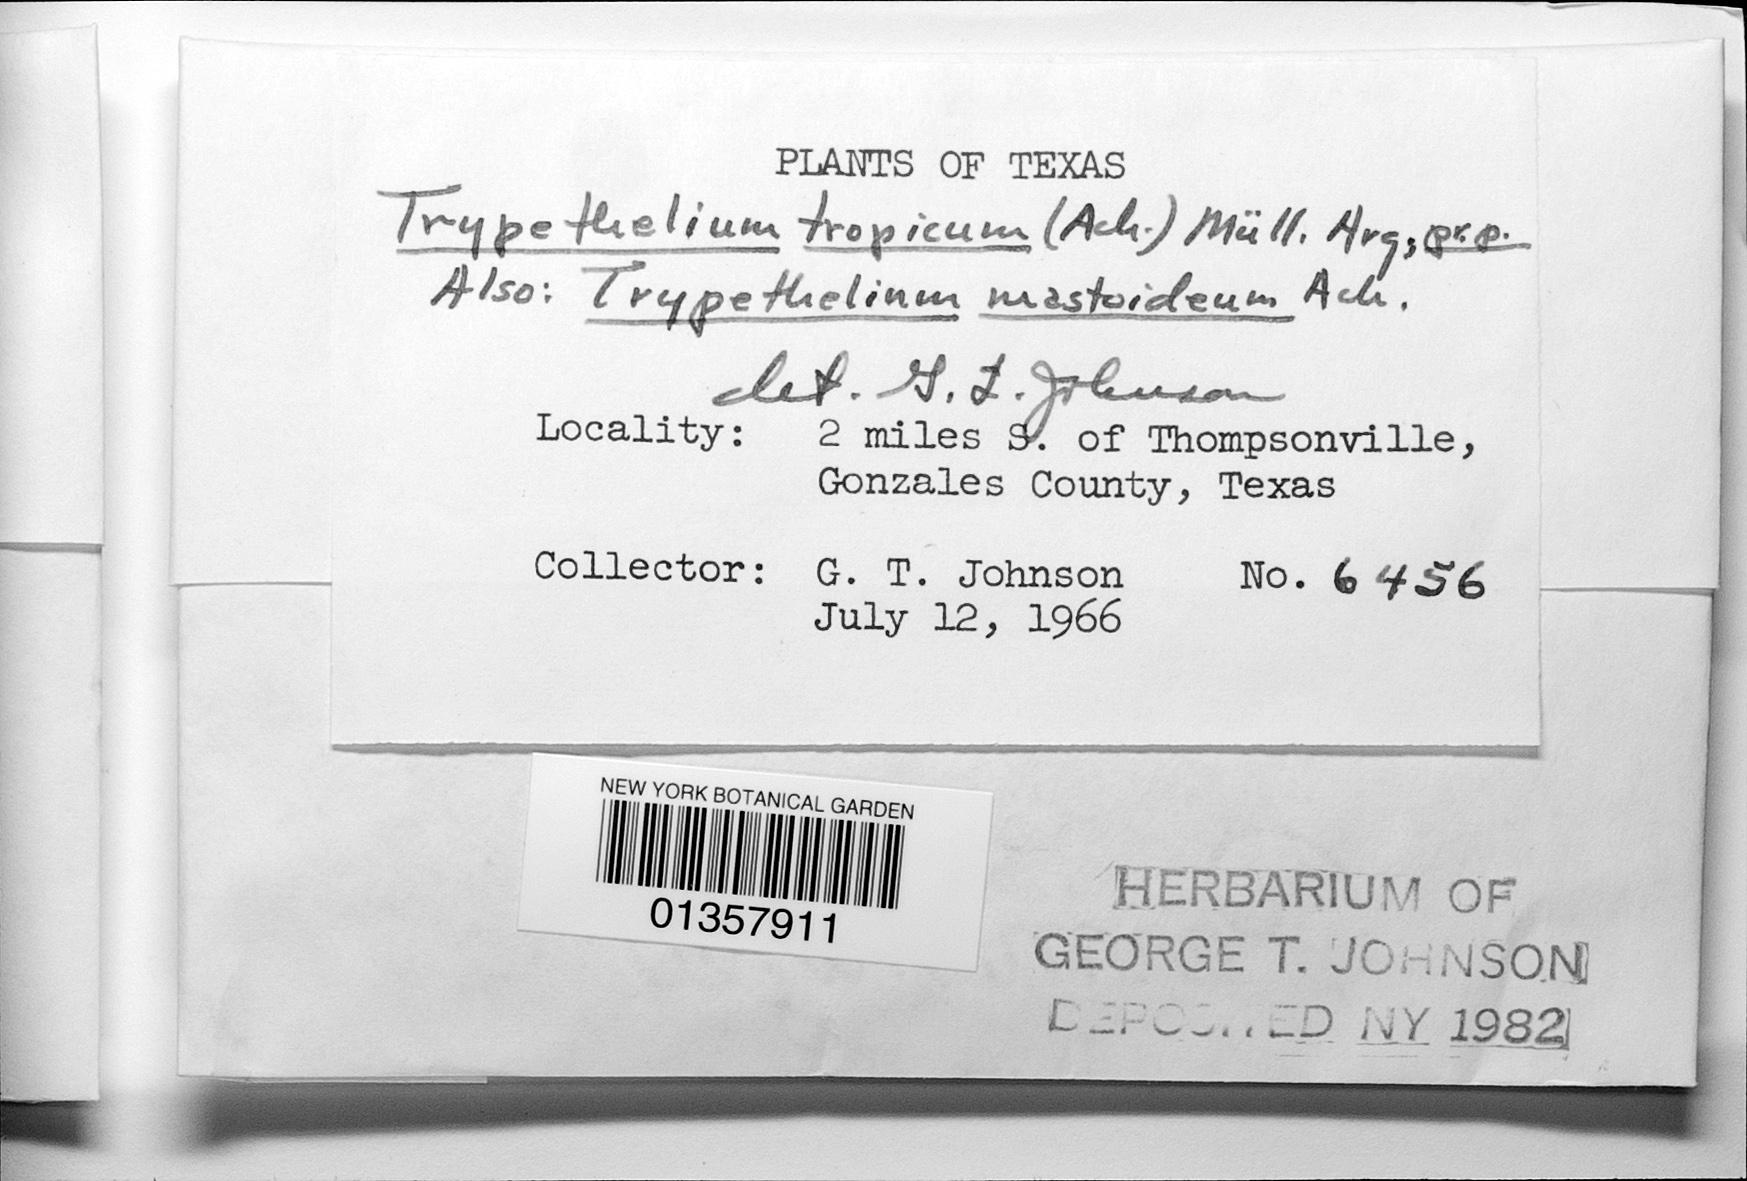 PLANTS OF TEXAS
Trypethelium tropicum (Ach.) Müll. Arg; pr. p.
Also: Trypethelium mastoideum Ach.
det. G. T. Johnson
Locality: 2 miles S. of Thompsonville,
Gonzales County, Texas
Collector: G. T. Johnson No. 6456
July 12, 1966
NEW YORK BOTANICAL GARDEN
01357911
HERBARIUM OF
GEORGE T. JOHNSON
DEPOSITED NY 1982